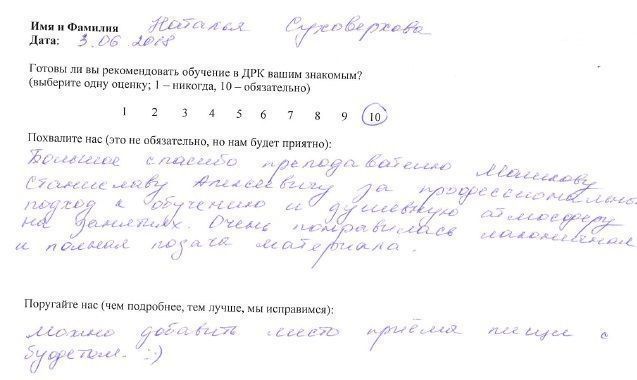 Имя и Фамилия Наталья Суховерхова
Дата: 3.06 2018
Готовы ли вы рекомендовать обучение в ДРК вашим знакомым?
(выберите одну оценку; 1 – никогда, 10 – обязательно)
1 2 3 4 5 6 7 8 9 10
Похвалите нас (это не обязательно, но нам будет приятно):
Большое спасибо преподавателю Машкову
Станиславу Алексеевичу за профессиональный
подход к обучению и душевную атмосферу
на занятиях. Очень понравилась лаконичная
и полная подача материала.
Поругайте нас (чем подробнее, тем лучше, мы исправимся):
Можно добавить место приёма пищи с
буфетом. :)